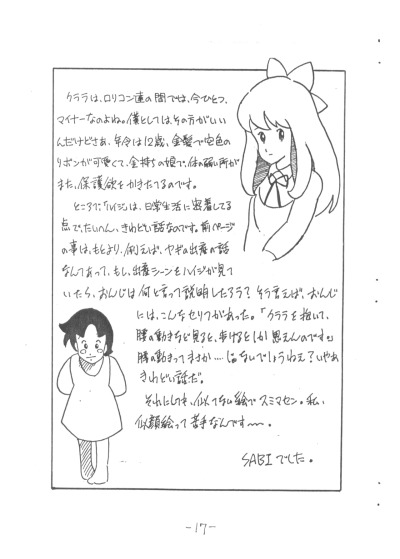 クララは、ロリコン達の間では、今ひとつ、
マイナーなのよね。僕としては、その方がいい
んだけどさぁ、年令は12歳、金髪で空色の
リボンが可愛くて、金持ちの娘で、体の弱い所が
また、保護欲をかきたてるのです。
ところで「ハイジ」は、日常生活に密着してる
点で、たいへん、きわどい話なのです。前ページ
の事は、もとより、例えば、ヤギの出産の話
なんてあって、もし、出産シーンをハイジが見て
いたら、おんじは何と言って説明したろう?そう言えば、おんじ
には、こんなセリフがあった。「クララを抱いて、
腰の動きなど見ると、歩けるとしか思えんのです。」
腰の動きってまさか…じゃないでしょうねえ?いやぁ
きわどい話だ。
それにしても、似てない絵でスミマセン。私、
似顔絵って苦手なんです〜〜。
SABIでした。
-17-